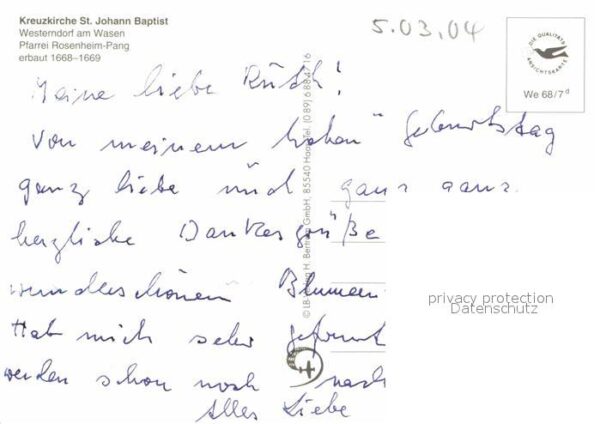 Kreuzkirche St. Johann Baptist
Westerndorf am Wasen
Pfarrei Rosenheim-Pang
erbaut 1668–1669
5.03.04
DIE QUALITÄTS
ANSICHTSKARTE
We 68/7 d
Meine liebe Ruth!
Von meinem hohen Geburtstag
ganz liebe und ganz ganz
herzliche Dankesgrüße
wunderschönen Blumen
Hat mich sehr gefreut
werden schon noch nach
Alles Liebe
privacy protection
Datenschutz